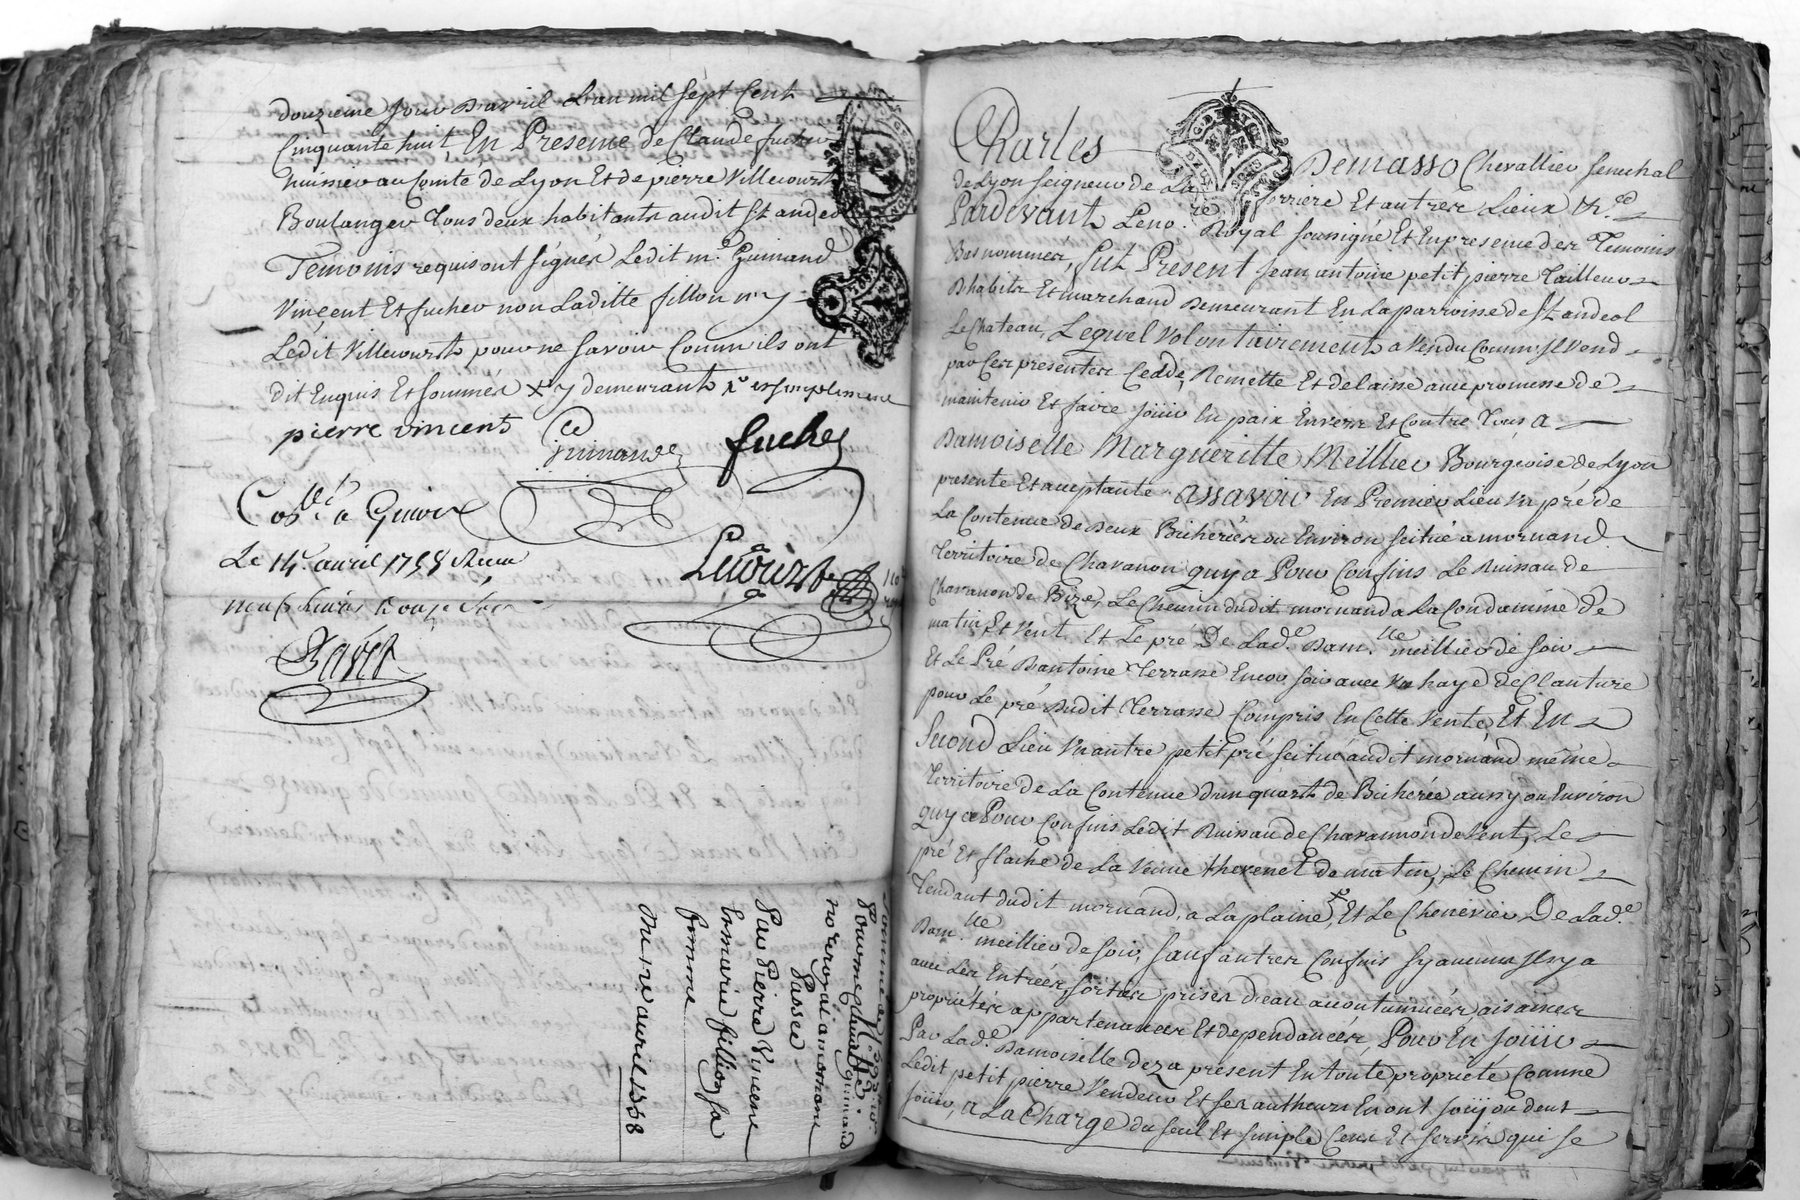 douzieme Jour Davril Lan mil sept Cent
Cinquante huit En Presence de Claude fucher
huissier au Comté de Lyon Et de pierre Villecourt
Boulanger tous deux habitants audit St andeol
Temoins requis ont signés Ledit me. Guinand
Vincent Et fucher non Laditte fillon ny
Ledit Villecourt pour ne savoir Comm'ils ont
dit Enquis Et sommés x y demeurants x et simplement
pierre vincent
Guinand fucher
Conlé. a Givors
Le 14e. avril 1758 Reçu
neuf livres douze sols
Bavet
pour me claude guinand
no.re royal a mornant
Passée.
Par Pierre Vincent
Et marie fillion sa
femme
Du 12 avril 1758
Charles Demasso Chevallier senechal
de Lyon seigneur de La ferriere Et autres Lieux &c.
Pardevant Le no.re Royal soussigné Et En presence des Temoins
Bas nommés, fut Present Jean antoine petit pierre Tailleur
D'habits Et marchand Demeurant En La parroisse de St andeol
Le Chateau, Lequel Volontairement a Vendu Comm'Il Vend
par Ces presentes Cedde, Remette Et delaisse avec promesse de
maintenir Et faire Joüir En paix Envers Et Contre Tous, a
Damoiselle Margueritte Meillier Bourgeoise de Lyon
presente Et acceptante assavoir En Premier Lieu Un pré de
La Contenue de deux Bicherées ou Environ scitué a mornand
Territoire de Chavanon quy a Pour Confins Le Ruissau de
Chavanon de Bize, Le Chemin dudit mornand a La Condamine de
matin Et Vent, Et Le pré De Lad.e Dam.lle meillier de soir
Et Le Pré D'antoine Terrasse Encor soir avec Un haye de Clauture
pour Le pré Dudit Terrasse Compris En Cette Vente, Et En
Second Lieu Un autre petit pré scitué audit mornand même
Territoire de La Contenue d'un quart de Bicherée aussy ou Environ
quy a Pour Confins Ledit Ruissau de Chavannon de Vent, Le
pré Et flache de La Veuve thevenet de matin, Le Chemin
Tendant dudit mornand, a La plaine x, Et Le Chenevier De Lad.e
Dam.lle meillier de soir, sauf autres Confins sy aucuns Il y a
avec Les Entrées, sorties prises d'eau accoutumées aisances
proprietés appartenances Et dependances, Pour En Joüir
Par Lad.e Damoiselle dez a present En toute propriété Comme
Ledit petit pierre Vendeur Et ses autheurs En ont Joüy ou deut
Joüir, a La Charge du seul Et simple Cens Et servis qui se